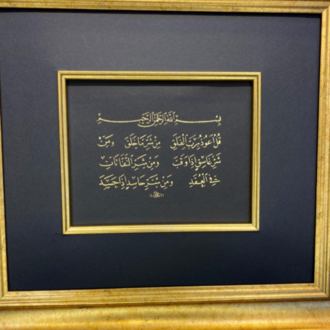 بسم الله الرحمن الرحيم
قل أعوذ برب الفلق من شر ما خلق ومن
شر غاسق إذا وقب ومن شر النفاثات
في العقد ومن شر حاسد إذا حسد